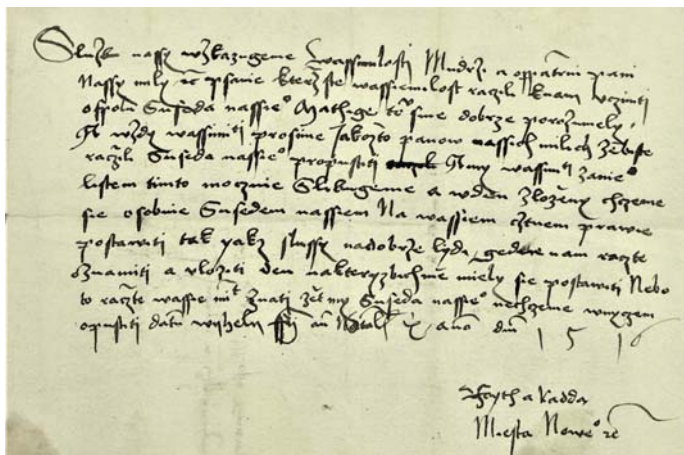 Službu nassy wzkazugeme wassimilosti Mudrzi a oppatrni pani
Nassy mily etc psanie kterezste wassiemilost raczili knam vcziniti
ospolu Suseda nassieo Mathige tomu sme dobrze porozumely
A wzdy wassimti prosime Jakozto panow nassich milich zebiste
raczili Suseda nassieo propustiti A my wassimti zanieo
listem timto mocznie Slibugeme a wden zlozeny chczeme
sie osobnie Susedem nassiem Na wassiem cztnem prawie
postawiti tak yakz slussy nadobrze lydi gedne nam raczte
Oznamiti a vloziti den nakteryzbichme miely sie postawiti Nebo
to raczte wassie mt znati zet my Suseda nassieo nechczeme wnyczem
opustiti datum 1516
Foyth a Radda
Miesta Noweo etc